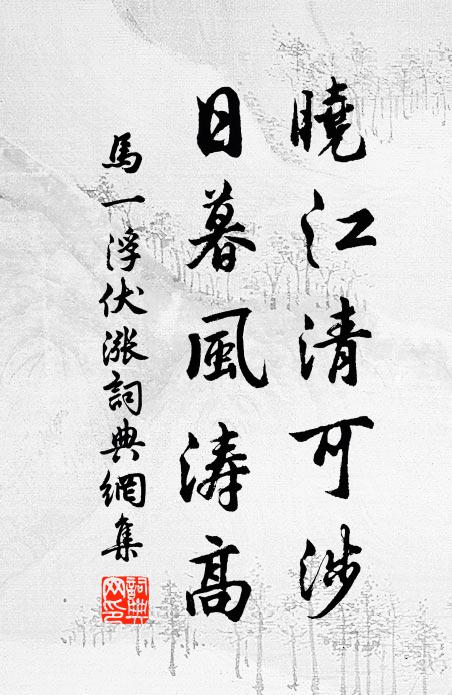 曉江清可涉
日暮風濤高
馬一浮伏漲詞典網集
詞典
网